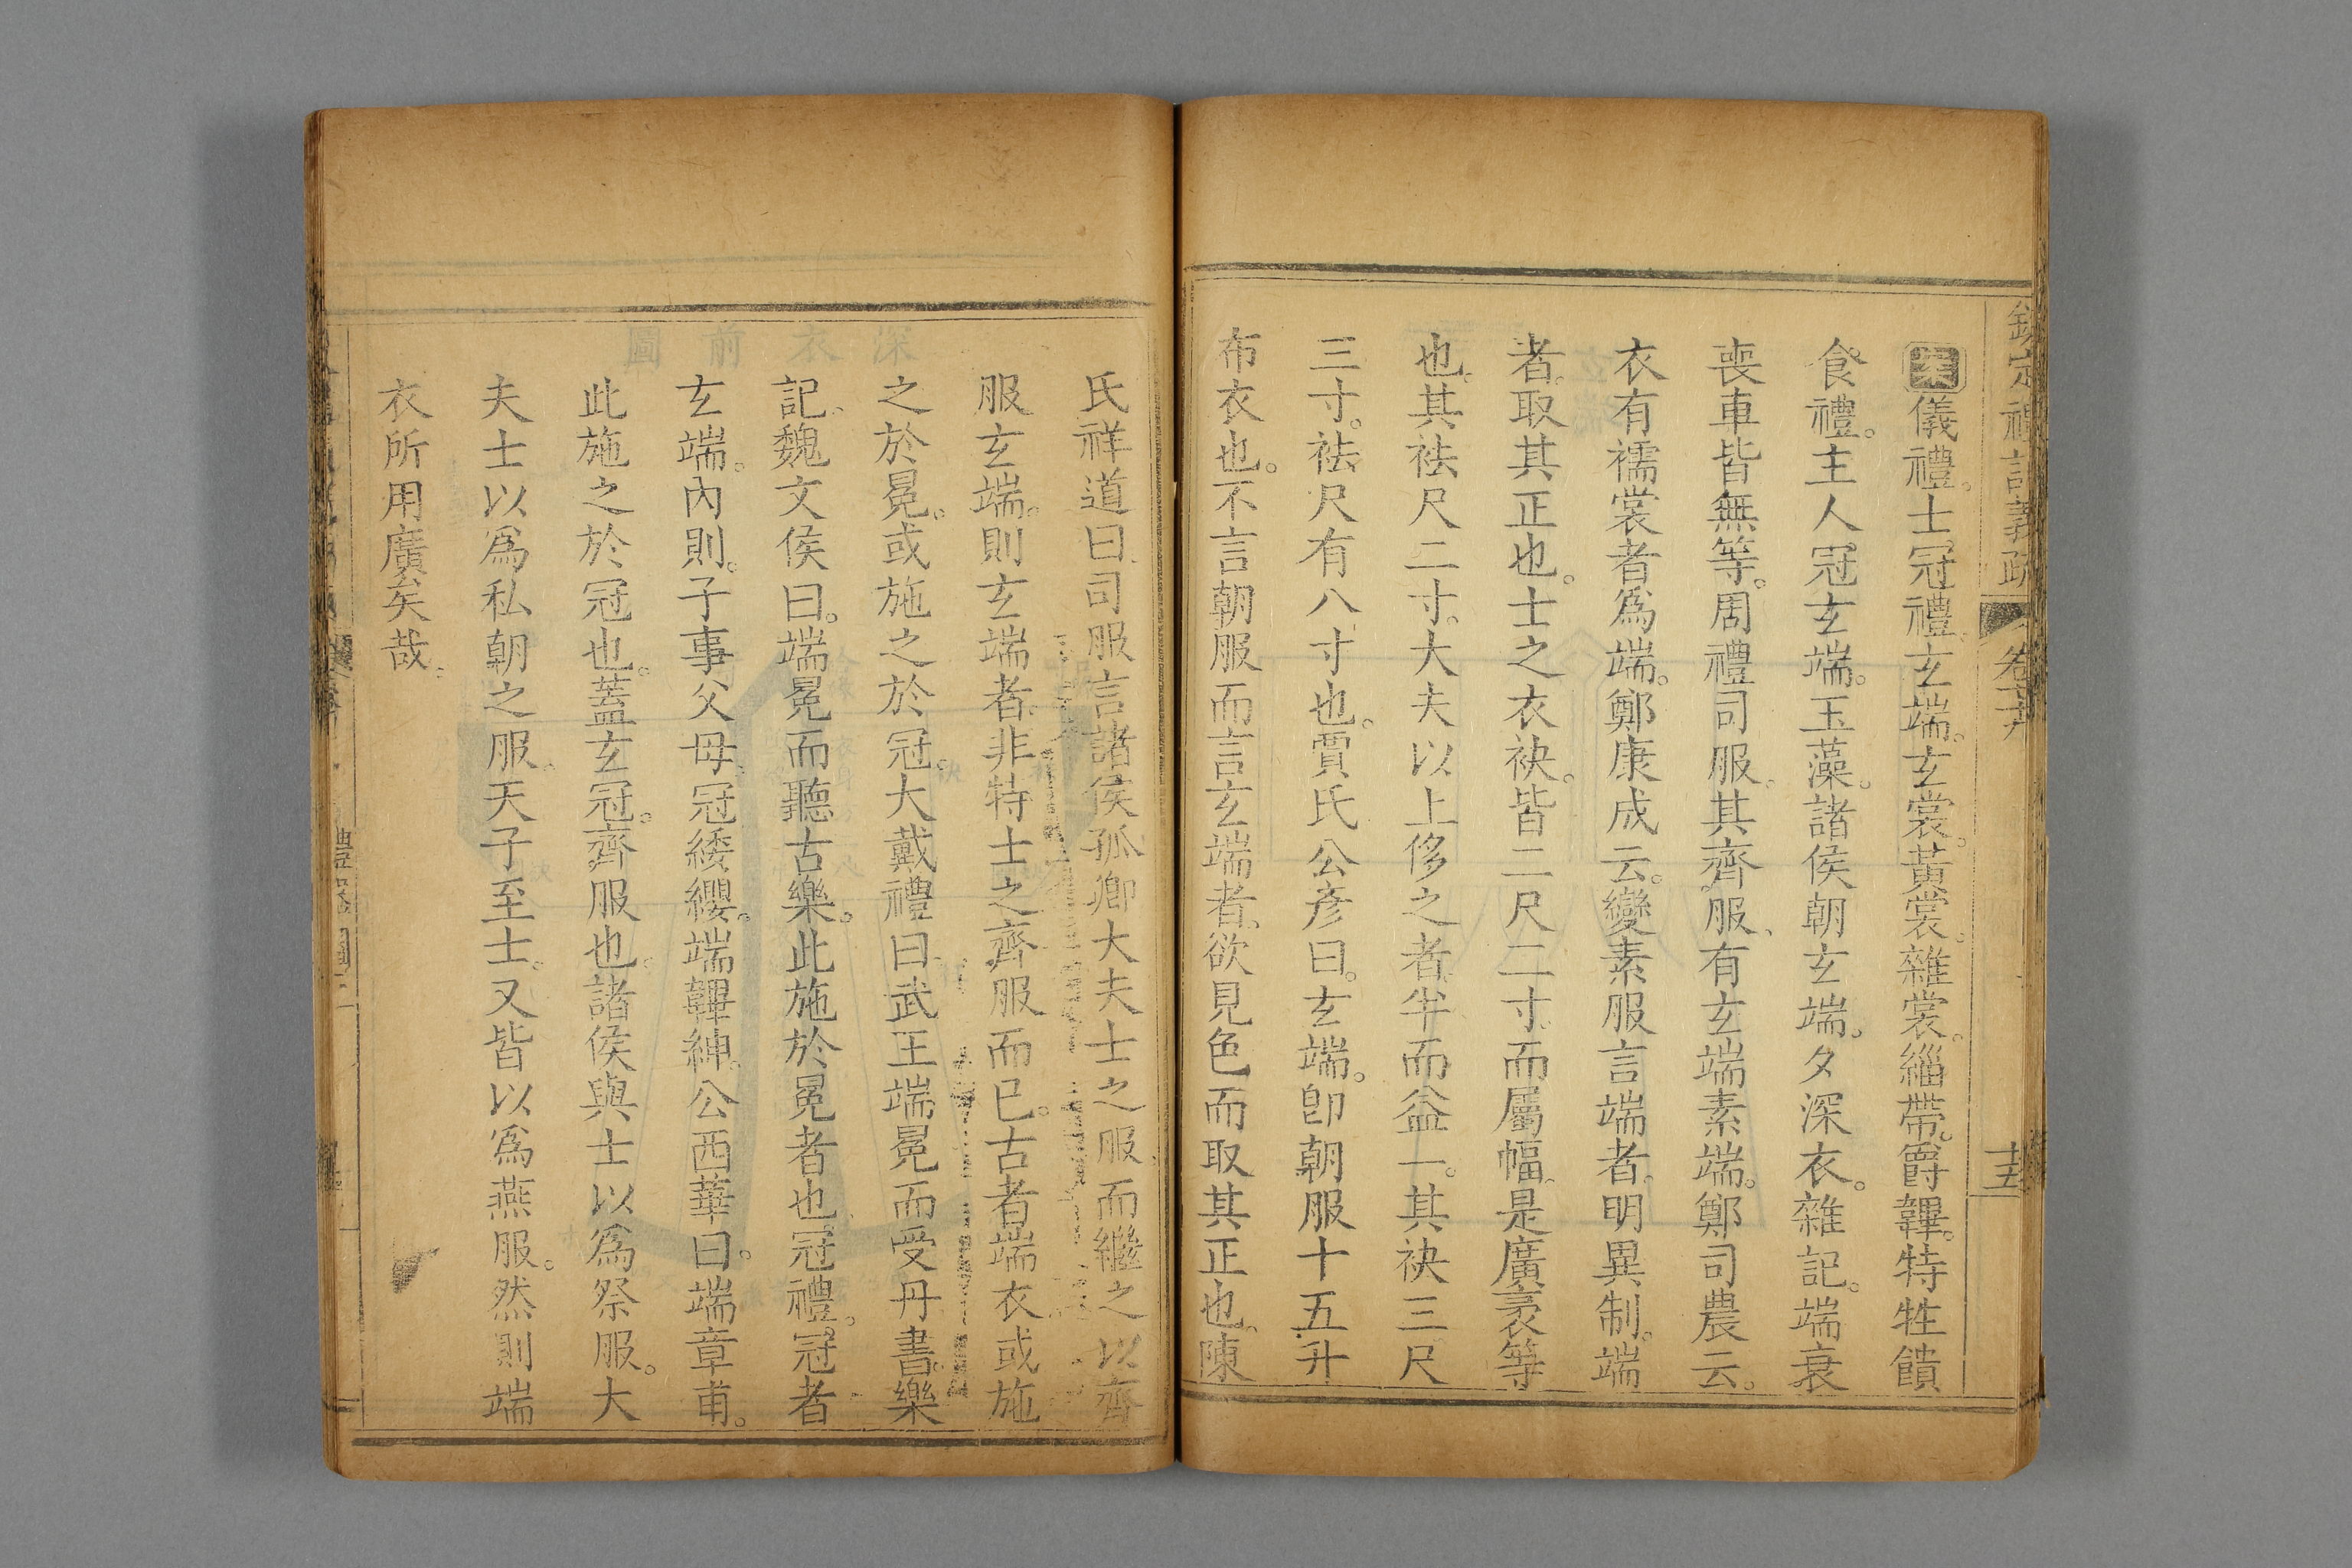 欽定禮記義疏 卷 十五
案儀禮。士冠禮。玄端。玄裳。黃裳。雜裳。緇帶。爵韠。特牲饋
食禮。主人冠玄端。玉藻。諸侯朝玄端。夕深衣。雜記。端衰
喪車皆無等。周禮司服。其齊服。有玄端素端。鄭司農云。
衣有襦裳者爲端。鄭康成云。變素服言端者。明異制。端
者。取其正也。士之衣袂。皆二尺二寸。而屬幅。是廣袤等
也。其袪尺二寸。大夫以上侈之者。半而益一。其袂三尺
三寸。袪尺有八寸也。賈氏公彥曰。玄端。卽朝服十五升
布衣也。不言朝服而言玄端者。欲見色而取其正也。陳
氏祥道曰。司服言諸侯孤卿大夫士之服而繼之以齊
服玄端。則玄端者。非特士之齊服而已。古者端衣或施
之於冕。或施之於冠。大戴禮曰。武王端冕而受丹書。樂
記。魏文侯曰。端冕而聽古樂。此施於冕者也。冠禮。冠者
玄端。內則。子事父母。冠緌纓。端韠紳。公西華曰。端章甫。
此施之於冠也。蓋玄冠。齊服也。諸侯與士以爲祭服。大
夫士以爲私朝之服。天子至士。又皆以爲燕服。然則端
衣所用廣矣哉。
禮器圖